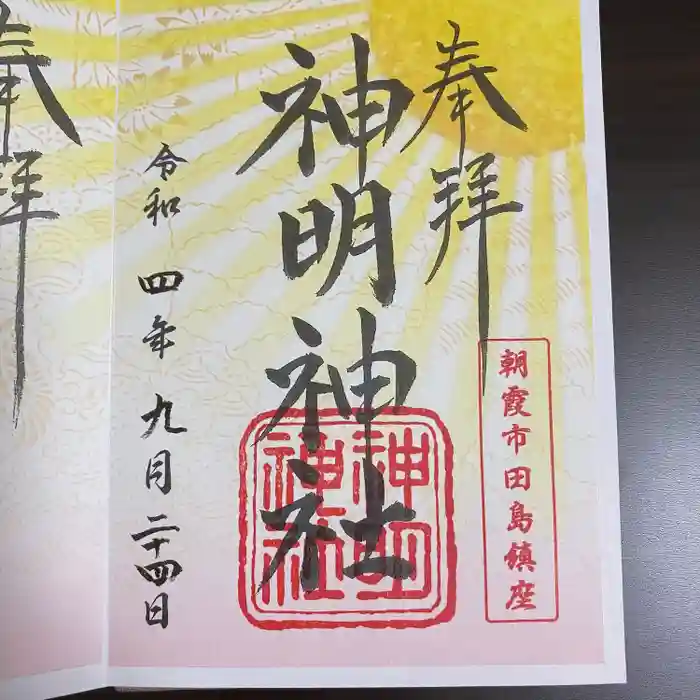 奉拝
朝霞市田島鎮座
神明神社
神明神社
令和四年九月二十四日
奉拝